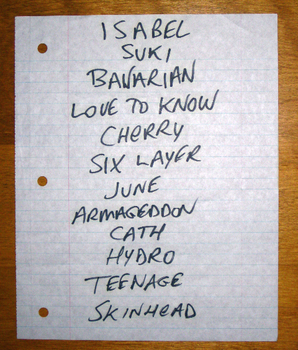 ISABEL
SUKI
BAVARIAN
LOVE TO KNOW
CHERRY
SIX LAYER
JUNE
ARMAGEDDON
CATH
HYDRO
TEENAGE
SKINHEAD